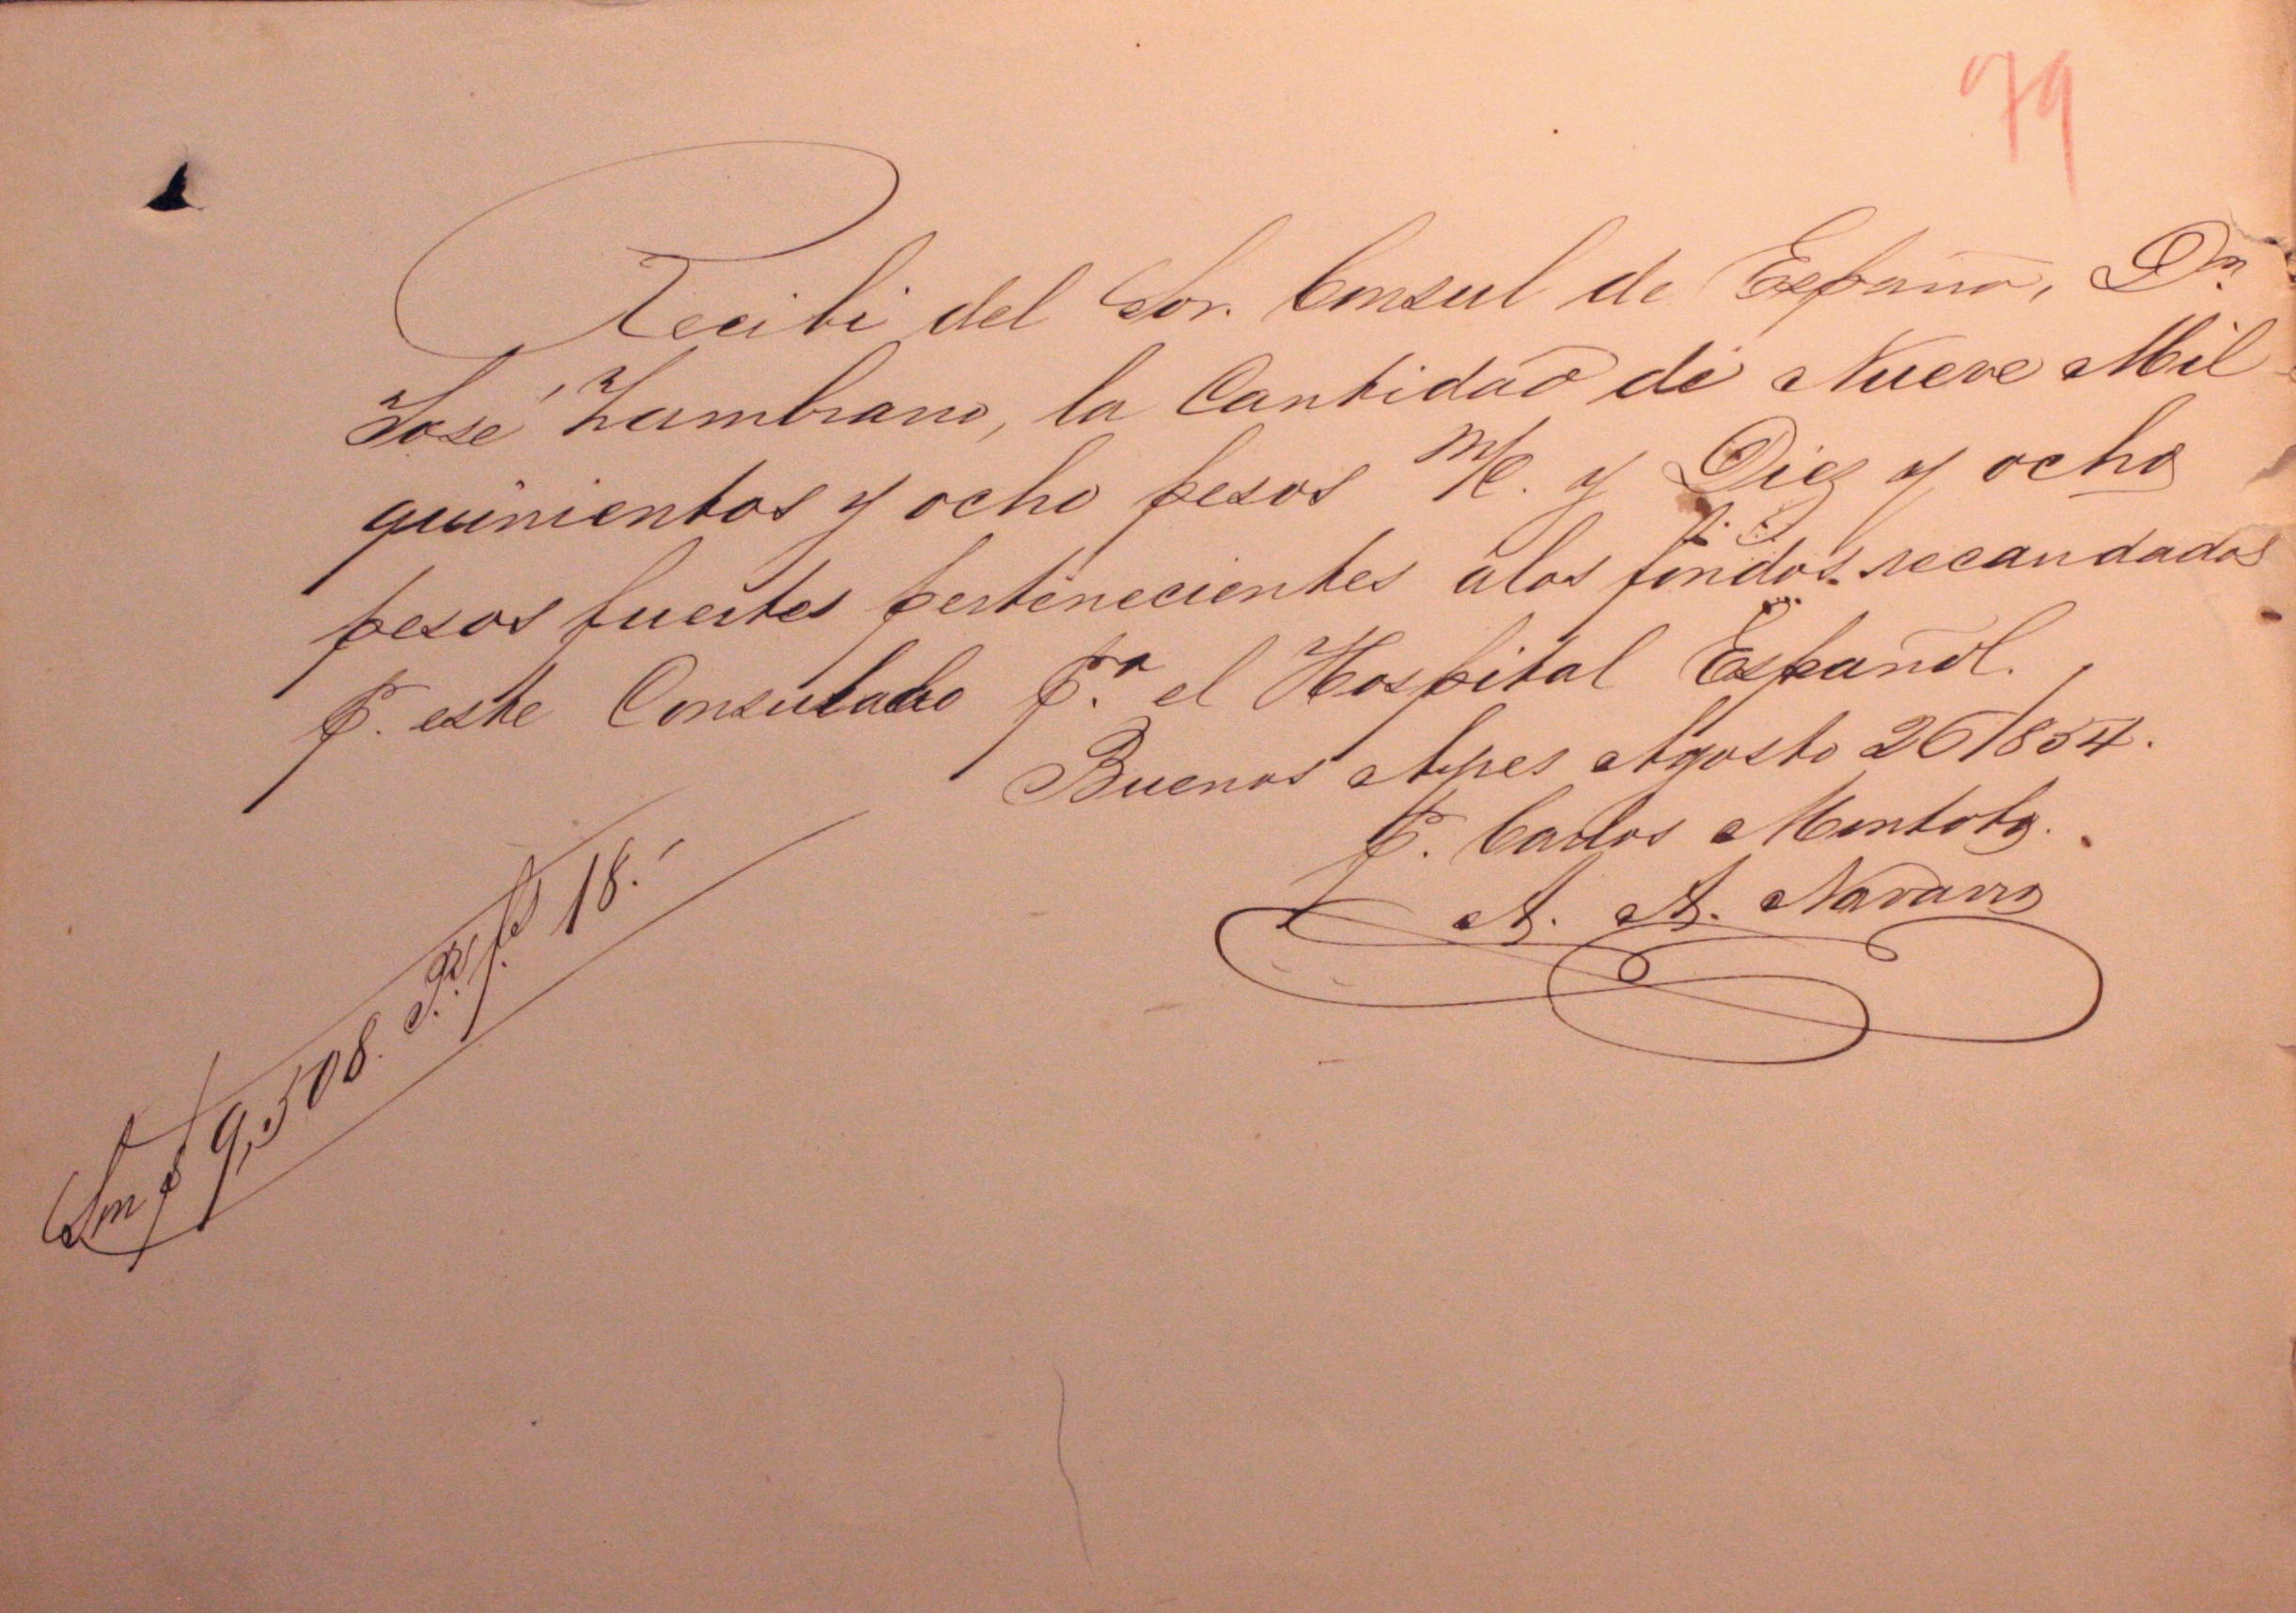 79
Recibi del Sor. Consul de España, Dn.
José Zambrano, la Cantidad de Nueve Mil
quinientos y ocho pesos m/c. y Diez y ocho
pesos fuertes pertenecientes alos fondos recaudados
p. este Consulado p.a el Hospital Español.
Buenos Ayres Agosto 26/854.
P. Carlos
A. A. Navarro
Son $ 9,508. 18.